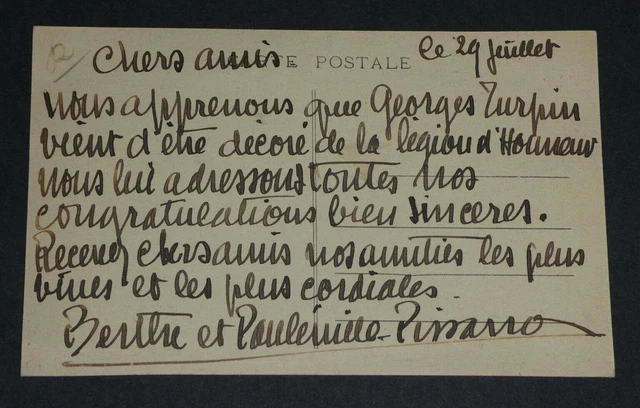 Chers amis CARTE POSTALE le 29 Juillet
nous apprenons que Georges Turpin
vient d'être décoré de la légion d'Honneur
nous lui adressons toutes nos
congratulations bien sinceres.
Recevez chers amis nos amitiés les plus
vives et les plus cordiales.
Berthe et Paulémile-Pissarro